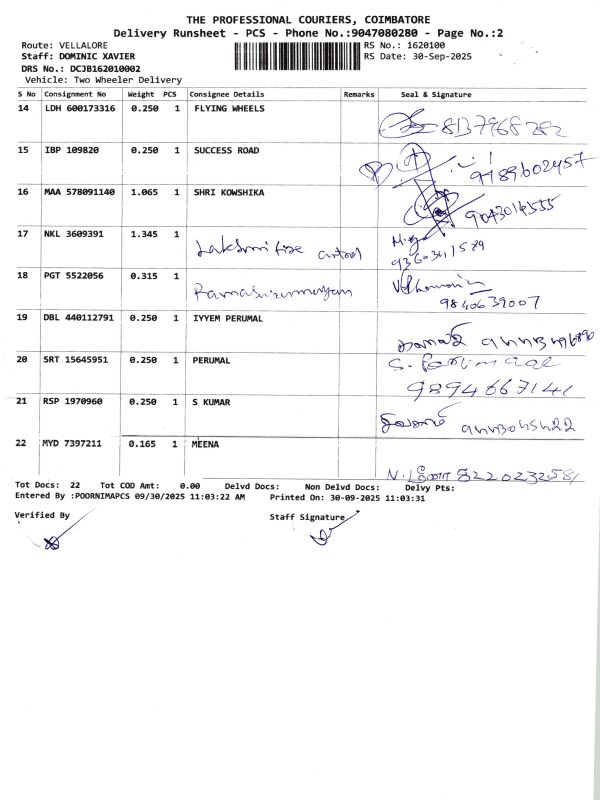 THE PROFESSIONAL COURIERS, COIMBATORE
Delivery Runsheet - PCS - Phone No.:9047080280 - Page No.:2
Route: VELLALORE RS No.: 1620100
Staff: DOMINIC XAVIER RS Date: 30-Sep-2025
DRS No.: DCJB162010002
Vehicle: Two Wheeler Delivery
S No Consignment No Weight PCS Consignee Details Remarks Seal & Signature
14 LDH 600173316 0.250 1 FLYING WHEELS
8137968282
15 IBP 109820 0.250 1 SUCCESS ROAD
9789602457
16 MAA 578091140 1.065 1 SHRI KOWSHIKA
17 NKL 3609391 1.345 1
Lakshmi fire
18 PGT 5522056 0.315 1
9840639007
19 DBL 440112791 0.250 1 IYYEM PERUMAL
20 SRT 15645951 0.250 1 PERUMAL
S. Perumaal
9894667141
21 RSP 1970960 0.250 1 S KUMAR
22 MYD 7397211 0.165 1 MEENA
N. மீனா
Tot Docs: 22 Tot COD Amt: 0.00 Delvd Docs: Non Delvd Docs: Delvy Pts:
Entered By :POORNIMAPCS 09/30/2025 11:03:22 AM Printed On: 30-09-2025 11:03:31
Verified By Staff Signature